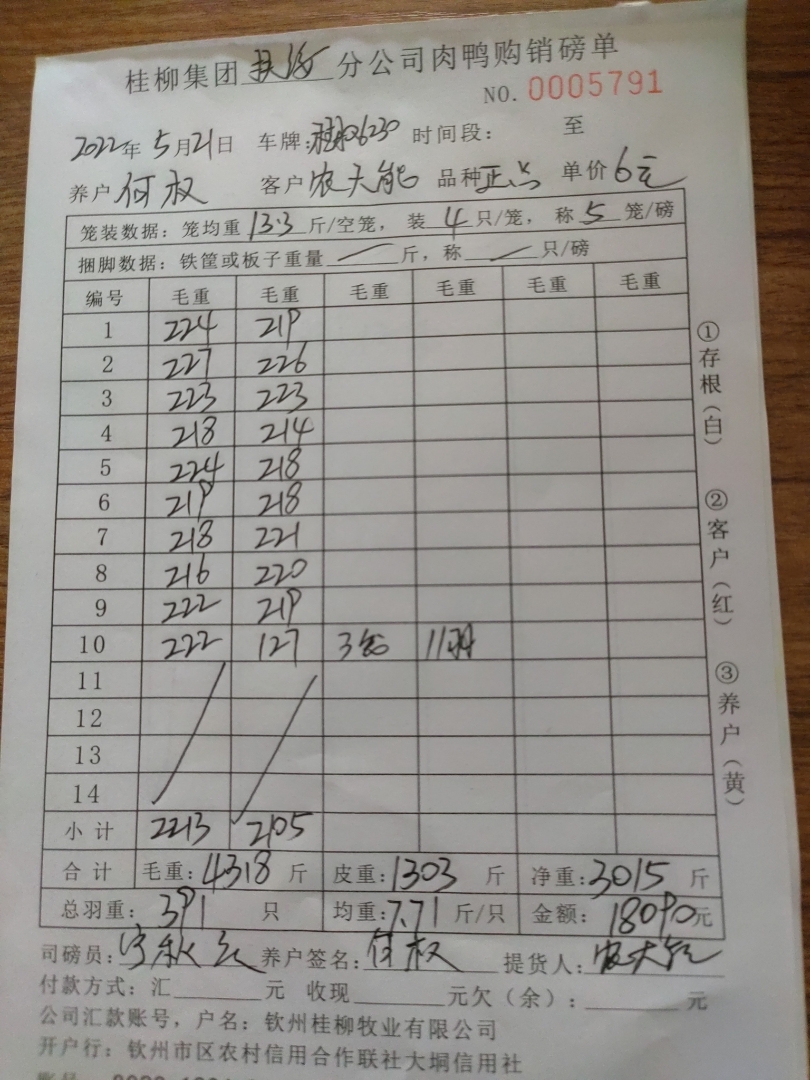 桂柳集团扶绥分公司肉鸭购销磅单
NO. 0005791
2022年 5月21日 车牌: 06230 时间段: 至
养户 何权 客户 农大能 品种 正点 单价 6元
笼装数据: 笼均重 13.3 斤/空笼, 装 4 只/笼, 称 5 笼/磅
捆脚数据: 铁筐或板子重量 / 斤, 称 / 只/磅
编号 毛重 毛重 毛重 毛重 毛重 毛重
1 224 219
2 227 226
3 223 223
4 218 214
5 224 218
6 219 218
7 218 221
8 216 220
9 222 219
10 222 127 3笼 11羽
11
12
13
14
小计 2213 2105
合计 毛重: 4318 斤 皮重: 1303 斤 净重: 3015 斤
总羽重: 391 只 均重: 7.71 斤/只 金额: 18090元
司磅员: 养户签名: 何权 提货人: 农大能
付款方式: 汇 元 收现 元欠(余): 元
公司汇款账号, 户名: 钦州桂柳牧业有限公司
开户行: 钦州市区农村信用合作联社大垌信用社
①存根(白) ②客户(红) ③养户(黄)